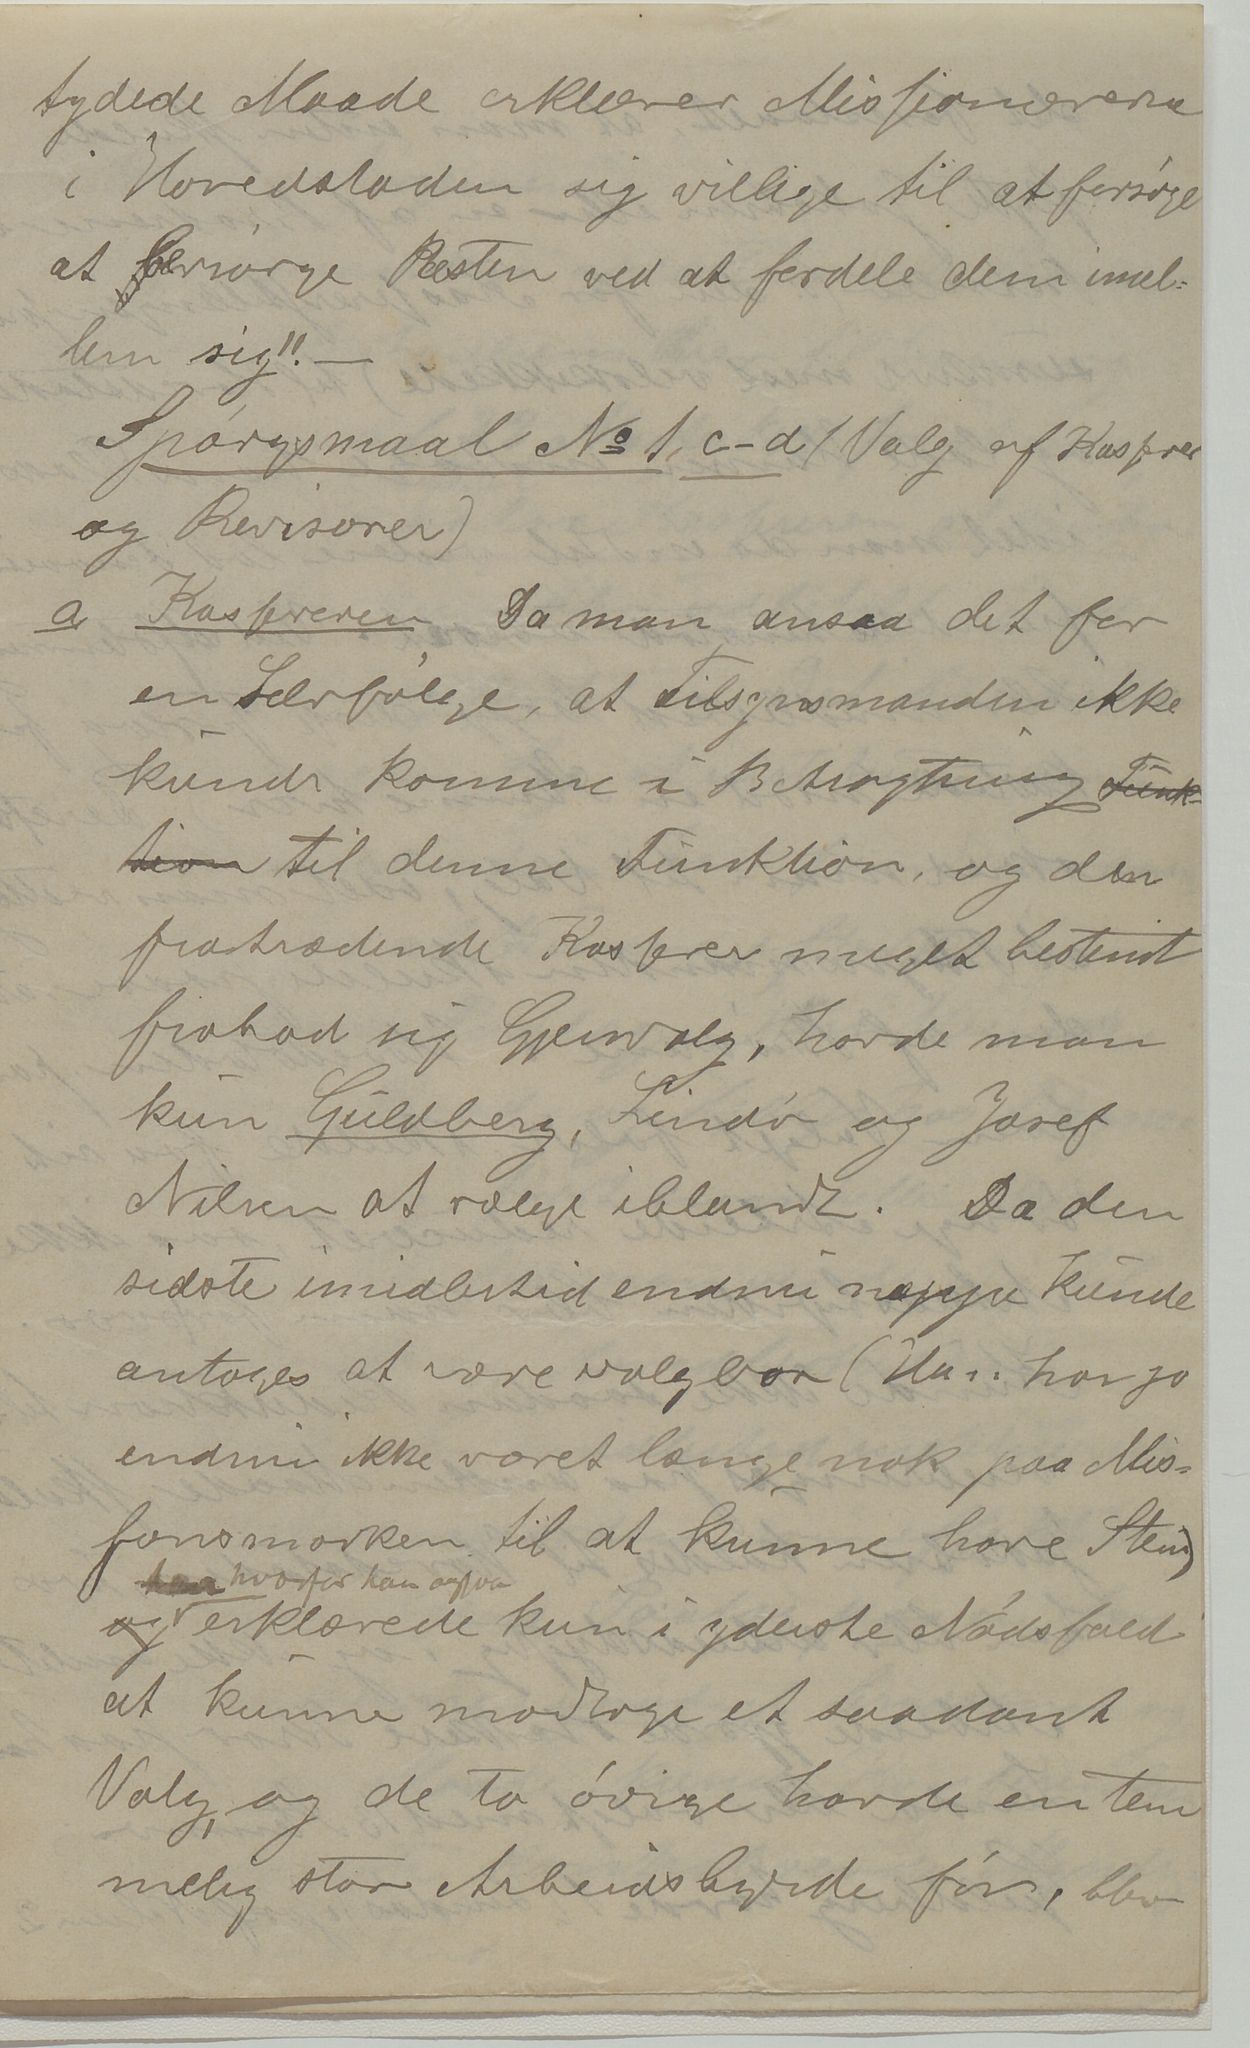 tydede Maade erklærer Missionærerne
i Hovedstaden sig villige til at forsøge
at besørge Resten ved at fordele dem imel-
lem sig!!. —
Spørgsmaal No 1, c-d (Valg af Kasserer
og Revisorer)
a Kassereren. Da man ansaa det for
en Selvfølge, at Tilsynsmanden ikke
kunde komme i Betragtning Funk-
tion til denne Funktion, og den
fratrædende Kasserer meget bestemt
frabad sig Gjenvalg, havde man
kun Guldberg, Lindø og Josef
Nilsen at vælge iblandt. Da den
sidste imidlertid endnu neppe kunde
antages at være valgbar (Han har jo
endnu ikke været længe nok paa Mis-
sionsmarken til at kunne have Stem)
hvorfor han ogsaa
og erklærede kun i yderste Nødsfald
at kunne modtage et saadant
Valg, og de to øvrige havde en tem
melig stor Arbeidsbyrde før, blev